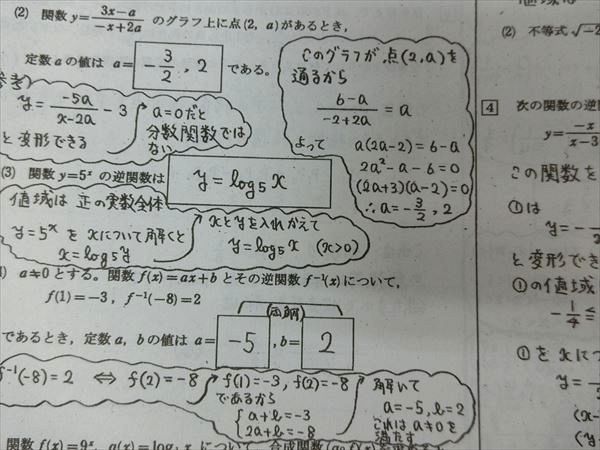 (2) 関数 y=\frac{3x-a}{-x+2a} のグラフ上に点(2, a)があるとき,
定数 a の値は a= -\frac{3}{2}, 2 である。
このグラフが、点(2,a)を
通るから
\frac{6-a}{-2+2a} = a
よって a(2a-2)=6-a
2a²-a-6=0
(2a+3)(a-2)=0
∴a=-\frac{3}{2}, 2
考)
y=\frac{-5a}{x-2a}-3
と変形できる
a=0だと
分数関数では
ない
(3) 関数 y=5ˣ の逆関数は y=log₅x
値域は 正の実数全体
y=5ˣ を xについて解くと
x=log₅y
xとyを入れかえて
y=log₅x (x>0)
) a≠0 とする。関数 f(x)=ax+b とその逆関数 f⁻¹(x) について,
f(1)=-3, f⁻¹(-8)=2
であるとき, 定数 a, b の値は a= -5 , b= 2
f⁻¹(-8)=2 ⇔ f(2)=-8
f(1)=-3, f(2)=-8
であるから
{a+b=-3
2a+b=-8
解いて
a=-5, b=2
これは a≠0 を
満たす
関数 f(x)=9ˣ,
(2) 不等式 √-2
4 次の関数の逆
y=\frac{-x}{x-3
この関数を
①は
y=-
と変形でき
①の値域
-\frac{1}{4}≦
①を xにつ
y=
(x-
(y-